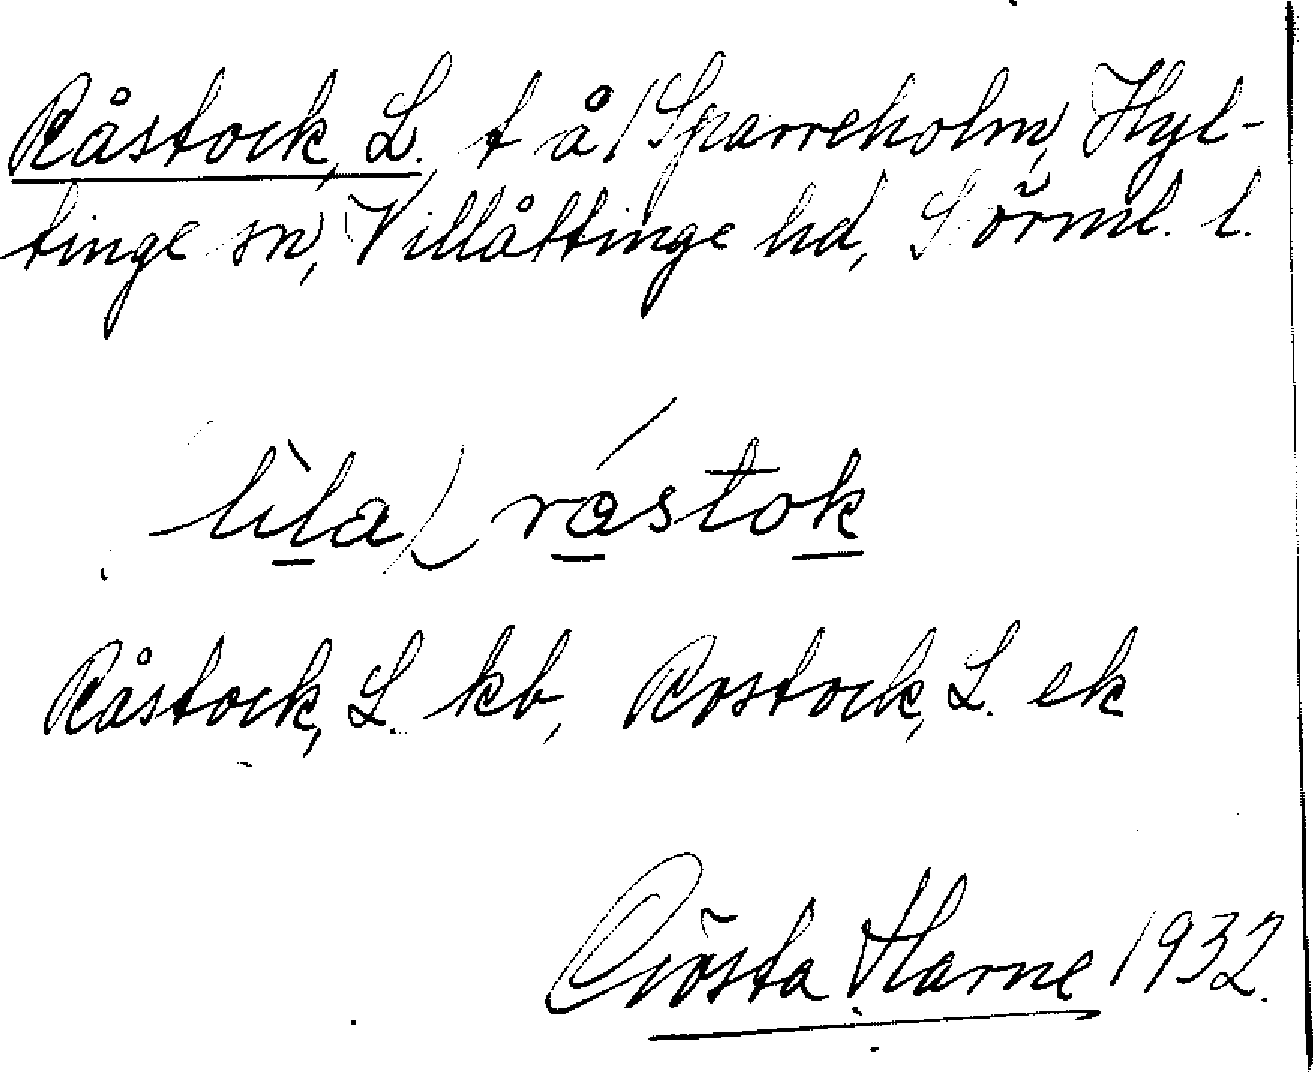 Råstock, L. t å/Sparreholm, Hyl-
tinge sn, Villåttinge hd, Sörml. l.
lìla) råstok
Råstock, L. kb, Rostock, L. ek
Gösta Harne 1932.